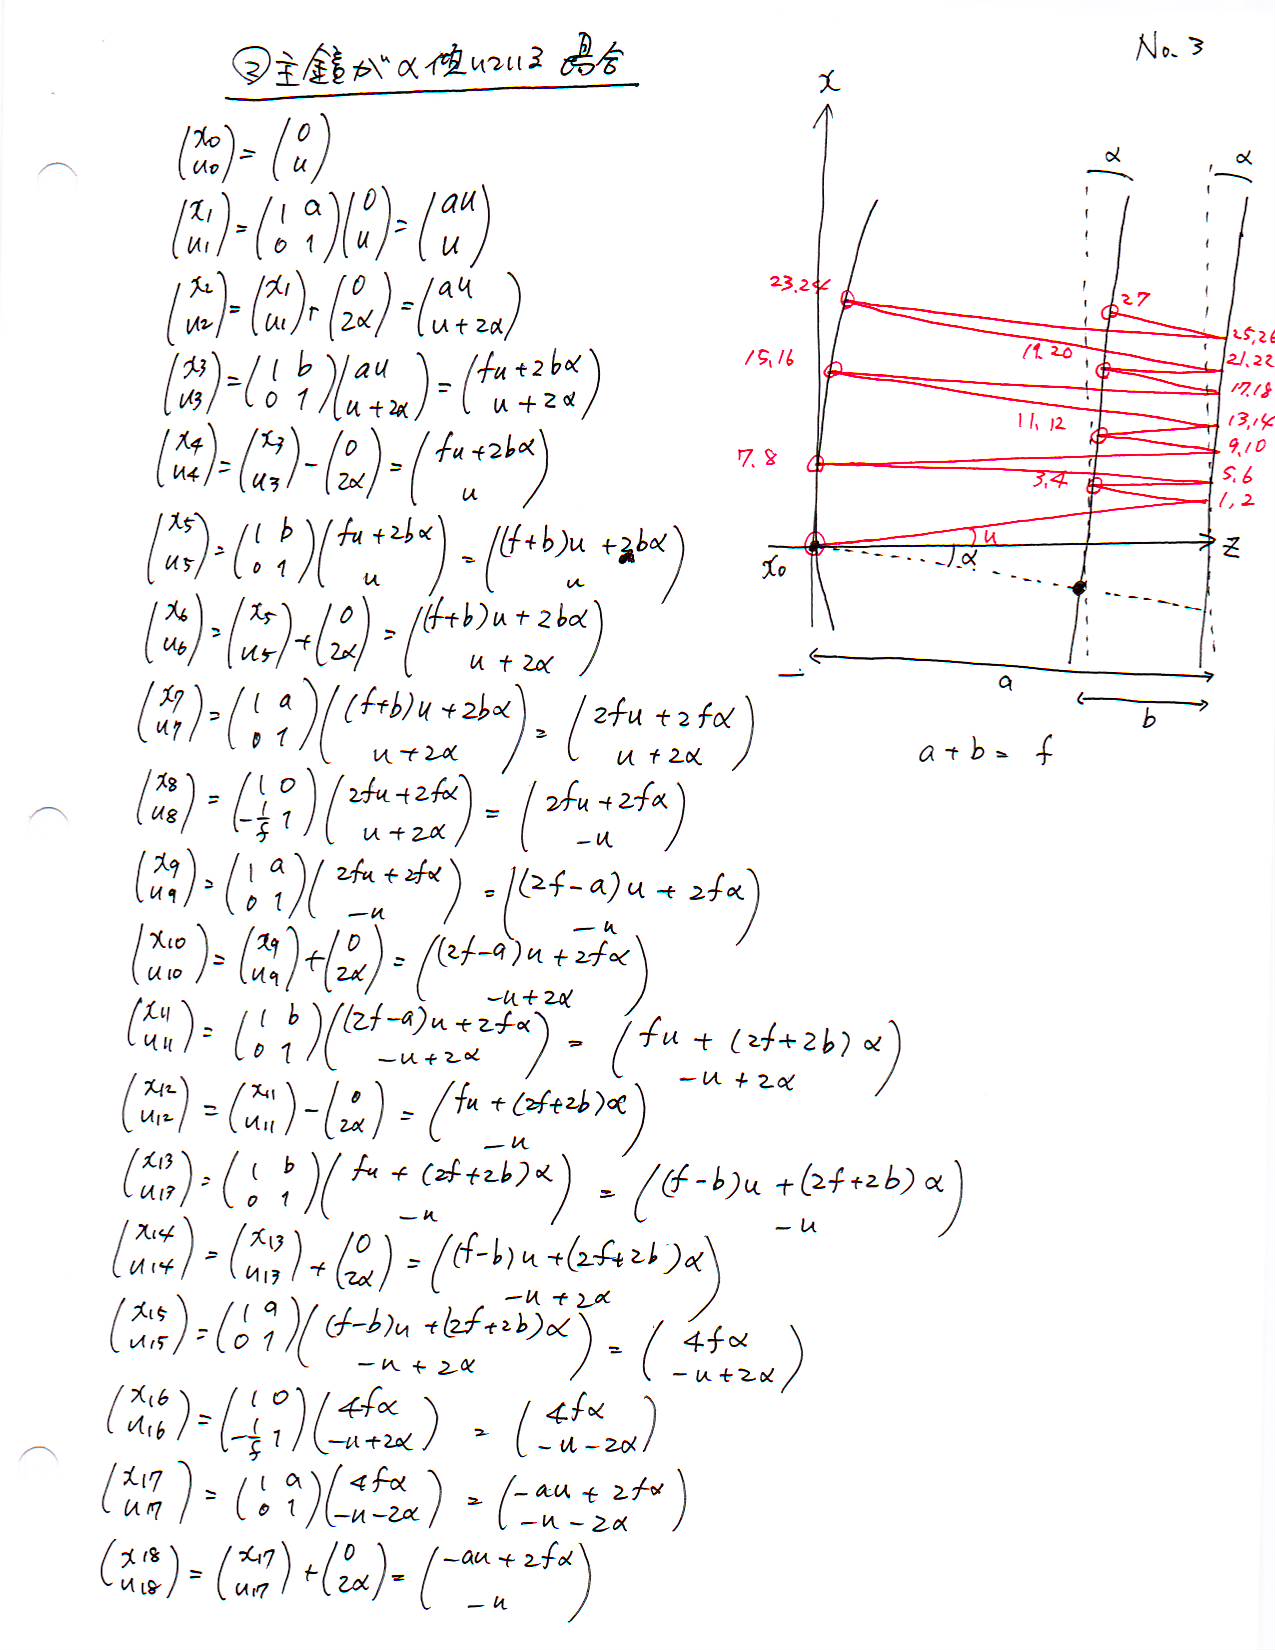 No. 3
②主鏡がα傾いている場合
(x0 u0) = (0 u)
(x1 u1) = (1 a 0 1)(0 u) = (au u)
(x2 u2) = (x1 u1) + (0 2α) = (au u+2α)
(x3 u3) = (1 b 0 1)(au u+2α) = (fu+2bα u+2α)
(x4 u4) = (x3 u3) - (0 2α) = (fu+2bα u)
(x5 u5) = (1 b 0 1)(fu+2bα u) = ((f+b)u+2bα u)
(x6 u6) = (x5 u5) + (0 2α) = ((f+b)u+2bα u+2α)
(x7 u7) = (1 a 0 1)((f+b)u+2bα u+2α) = (2fu+2fα u+2α)
(x8 u8) = (1 0 -1/f 1)(2fu+2fα u+2α) = (2fu+2fα -u)
(x9 u9) = (1 a 0 1)(2fu+2fα -u) = ((2f-a)u+2fα -u)
(x10 u10) = (x9 u9) + (0 2α) = ((2f-a)u+2fα -u+2α)
(x11 u11) = (1 b 0 1)((2f-a)u+2fα -u+2α) = (fu+(2f+2b)α -u+2α)
(x12 u12) = (x11 u11) - (0 2α) = (fu+(2f+2b)α -u)
(x13 u13) = (1 b 0 1)(fu+(2f+2b)α -u) = ((f-b)u+(2f+2b)α -u)
(x14 u14) = (x13 u13) + (0 2α) = ((f-b)u+(2f+2b)α -u+2α)
(x15 u15) = (1 a 0 1)((f-b)u+(2f+2b)α -u+2α) = (4fα -u+2α)
(x16 u16) = (1 0 -1/f 1)(4fα -u+2α) = (4fα -u-2α)
(x17 u17) = (1 a 0 1)(4fα -u-2α) = (-au+2fα -u-2α)
(x18 u18) = (x17 u17) + (0 2α) = (-au+2fα -u)
x
α
α
23.24
27
25,26
19.20
21,22
15,16
17.18
11,12
13,14
9,10
7.8
3,4
5,6
1,2
u
α
x0
z
a
b
a+b= f